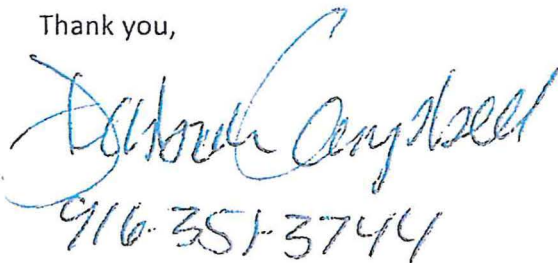 Thank you,
Deborah Campbell
916-351-3744